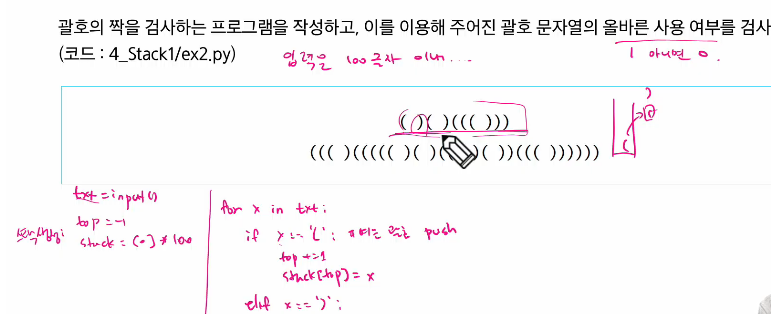 괄호의 짝을 검사하는 프로그램을 작성하고, 이를 이용해 주어진 괄호 문자열의 올바른 사용 여부를 검사
(코드 : 4_Stack1/ex2.py)
입력은 100글자 이내...
1 아니면 0.
( )( )((( )))
((( )((((( )( )( )( ))((( ))))))
txt = input()
top = -1
스택생성:
stack = [0] * 100
for x in txt:
if x == '(': 여는 괄호 push
top += 1
stack[top] = x
elif x == ')':